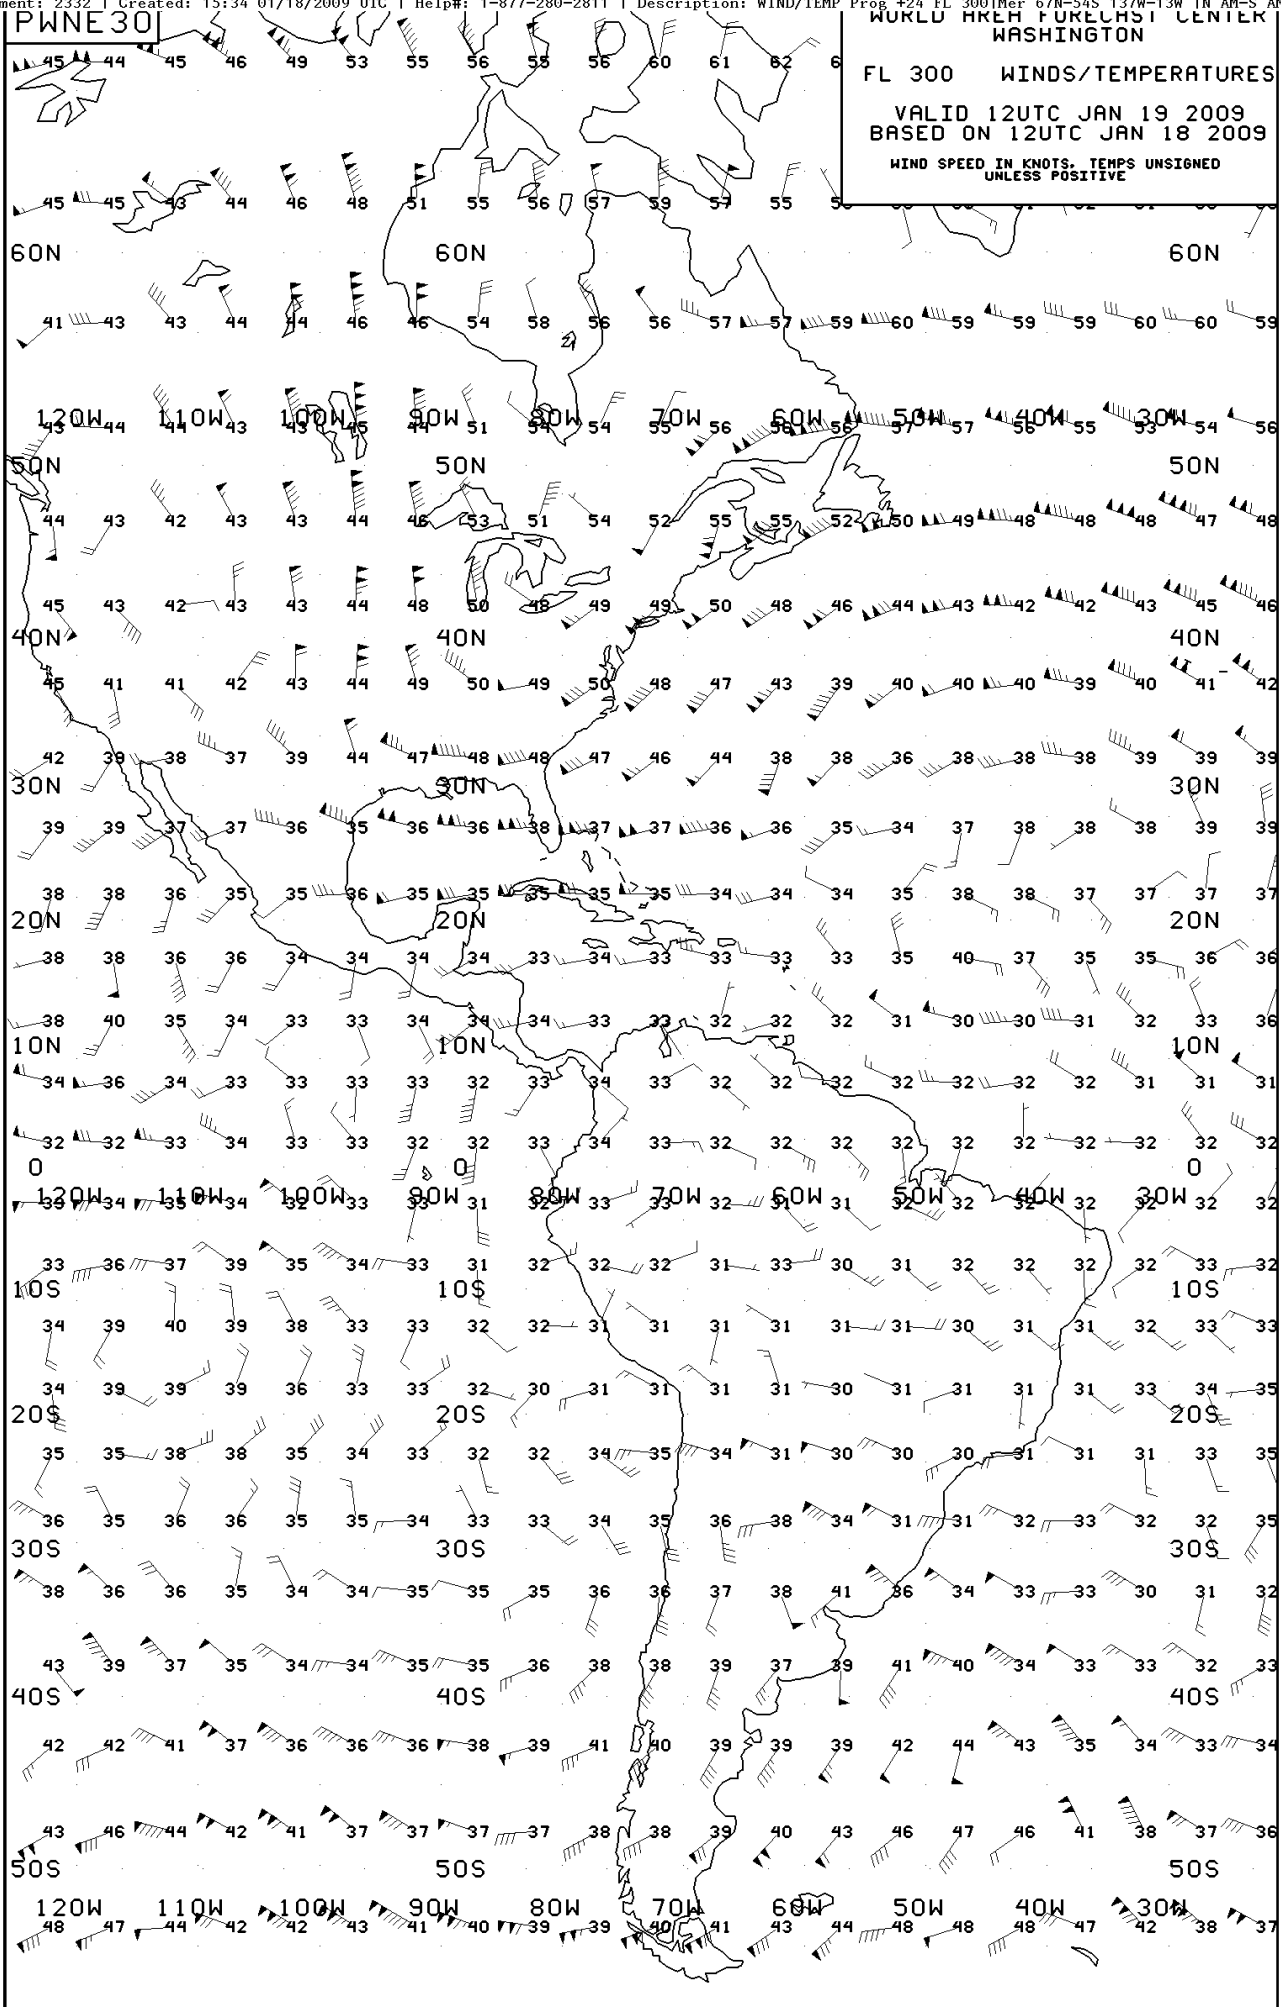 ment: 2332 | Created: 15:34 01/18/2009 UTC | Help#: 1-877-280-2811 | Description: WIND/TEMP Prog +24 FL 300|Mer 67N-54S 137W-13W
PWNE30
WORLD AREA FORECAST CENTER
WASHINGTON
FL 300 WINDS/TEMPERATURES
VALID 12UTC JAN 19 2009
BASED ON 12UTC JAN 18 2009
WIND SPEED IN KNOTS, TEMPS UNSIGNED
UNLESS POSITIVE
45 44 45 46 49 53 55 56 55 56 60 61 62
45 45 43 44 46 48 51 55 56 57 59 57 55
60N 60N 60N
41 43 43 44 44 46 46 54 58 56 56 57 57 59 60 59 59 59 60 60 59
120W 110W 100W 90W 80W 70W 60W 50W 40W 30W
43 44 44 43 43 45 44 51 54 54 55 56 56 56 57 57 56 55 53 54 56
50N 50N 50N
44 43 42 43 43 44 46 53 51 54 52 55 55 52 50 49 48 48 48 47 48
45 43 42 43 43 44 48 50 48 49 49 50 48 46 44 43 42 42 43 45 46
40N 40N 40N
45 41 41 42 43 44 49 50 49 50 48 47 43 39 40 40 40 39 40 41 42
42 39 38 37 39 44 47 48 48 47 46 44 38 38 36 38 38 38 39 39 39
30N 30N 30N
39 39 37 37 36 35 36 36 38 37 37 36 36 35 34 37 38 38 38 39 39
38 38 36 35 35 36 35 35 35 35 35 34 34 34 35 38 38 37 37 37 37
20N 20N 20N
38 38 36 36 34 34 34 34 33 34 33 33 33 33 35 40 37 35 35 36 36
38 40 35 34 33 33 34 34 34 33 33 32 32 32 31 30 30 31 32 33 36
10N 10N 10N
34 36 34 33 33 33 33 32 33 34 33 32 32 32 32 32 32 32 31 31 31
32 32 33 34 33 33 32 32 33 34 33 32 32 32 32 32 32 32 32 32 32
0 0 0
120W 110W 100W 90W 80W 70W 60W 50W 40W 30W
33 34 35 34 32 33 33 31 32 33 33 32 31 31 32 32 32 32 32 32 32
33 36 37 39 35 34 33 31 32 32 32 31 33 30 31 32 32 32 32 33 32
10S 10S 10S
34 39 40 39 38 33 33 32 32 31 31 31 31 31 31 30 31 31 32 33 33
34 39 39 39 36 33 33 32 30 31 31 31 31 30 31 31 31 31 33 34 35
20S 20S 20S
35 35 38 38 35 34 33 32 32 34 35 34 31 30 30 30 31 31 31 33 35
36 35 36 36 35 35 34 33 33 34 35 36 38 34 31 31 32 33 32 32 35
30S 30S 30S
38 36 36 35 34 34 35 35 35 36 36 37 38 41 36 34 33 33 30 31 32
43 39 37 35 34 34 35 35 36 38 38 39 37 39 41 40 34 33 33 32 33
40S 40S 40S
42 42 41 37 36 36 36 38 39 41 40 39 39 39 42 44 43 35 34 33 34
43 46 44 42 41 37 37 37 37 38 38 39 40 43 46 47 46 41 38 37 36
50S 50S 50S
120W 110W 100W 90W 80W 70W 60W 50W 40W 30W
48 47 44 42 42 43 41 40 39 39 40 41 43 44 48 48 48 47 42 38 37